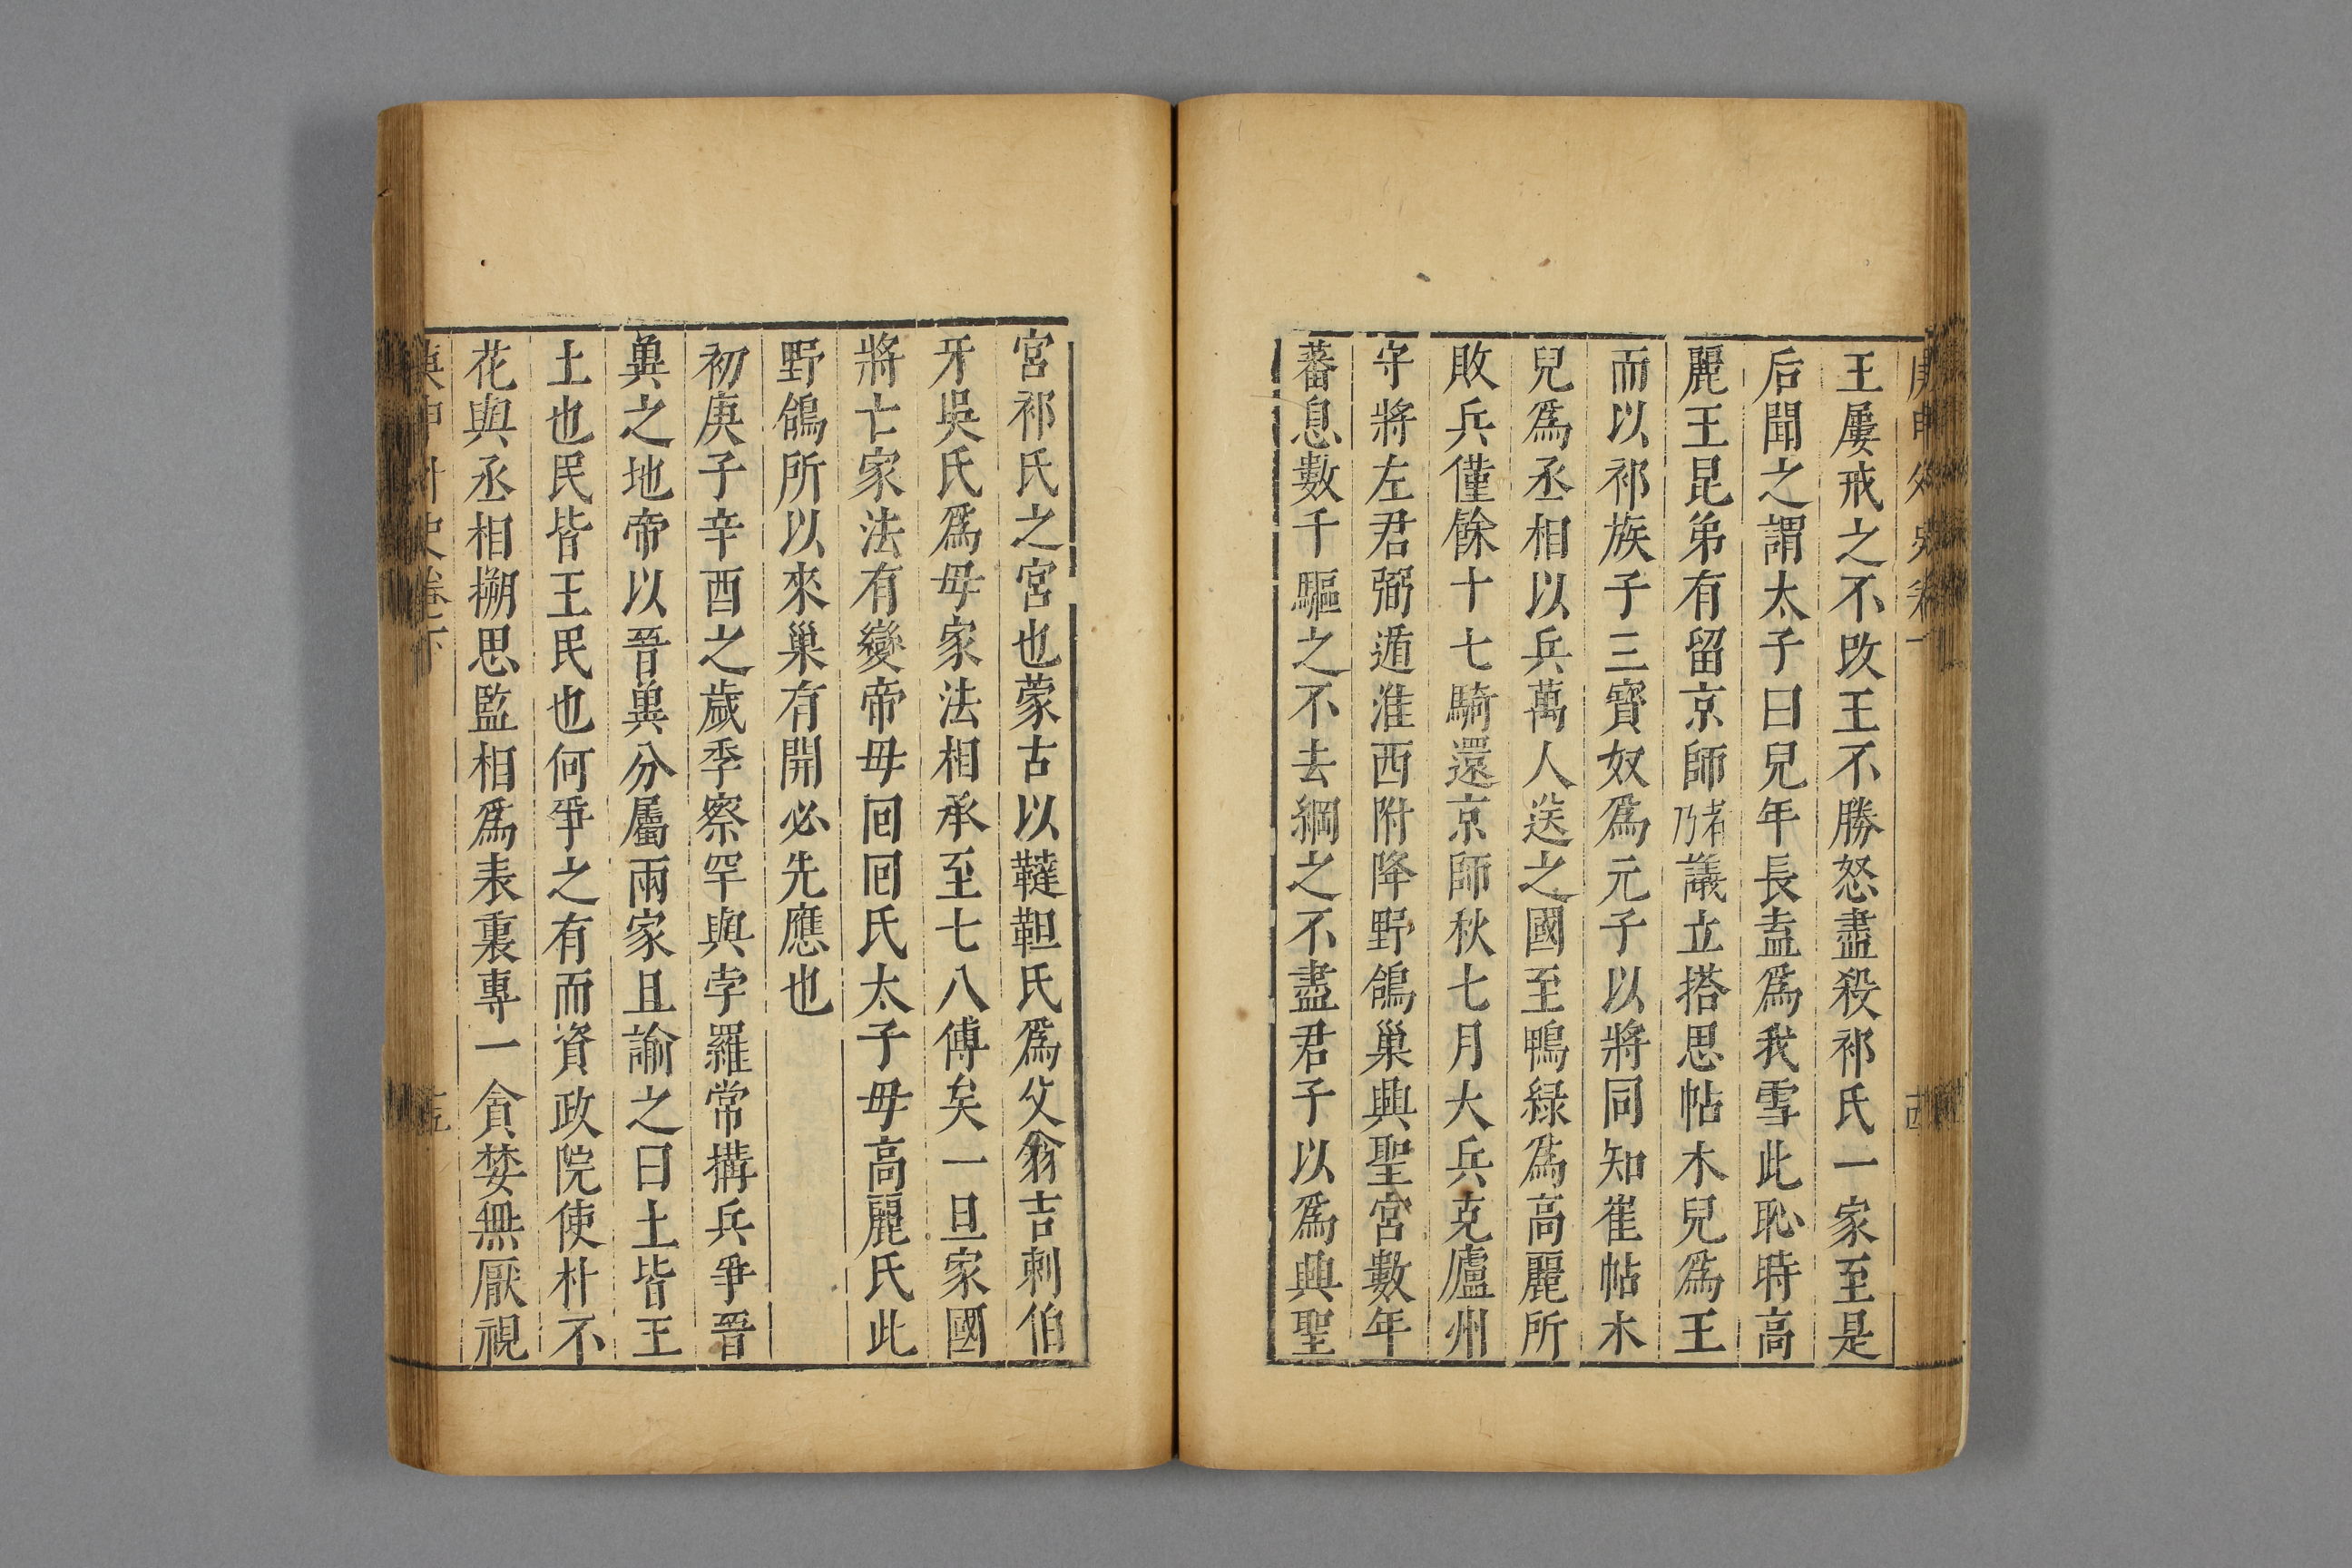 王屢戒之不改王不勝怒盡殺祁氏一家至是
后聞之謂太子曰兒年長盍爲我雪此恥時高
麗王昆弟有留京師者乃議立搭思帖木兒爲王
而以祁族子三寶奴爲元子以將同知崔帖木
兒爲丞相以兵萬人送之國至鴨綠爲高麗所
敗兵僅餘十七騎還京師秋七月大兵克廬州
守將左君弼遁淮西附降野鴿巢興聖宮數年
蕃息數千驅之不去綱之不盡君子以爲興聖
宮祁氏之宮也蒙古以韃靼氏爲父翁吉剌伯
牙吳氏爲母家法相承至七八傳矣一旦家國
將亡家法有變帝母回回氏太子母高麗氏此
野鴿所以來巢有開必先應也
初庚子辛酉之歲季察罕與孛羅常搆兵爭晉
兾之地帝以晉兾分屬兩家且諭之曰土皆王
土也民皆王民也何爭之有而資政院使朴不
花與丞相搠思監相爲表裏專一貪婪無厭視
庚申外史卷下